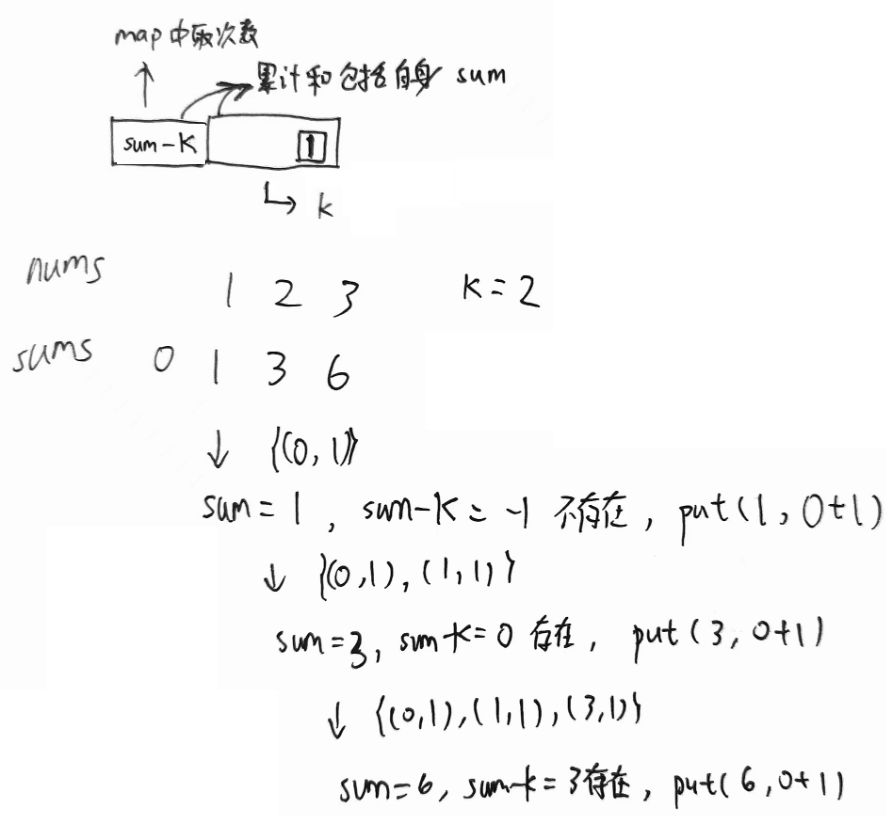 map中取次数
累计和包括自身 sum
sum-K
1
k
nums 1 2 3 K=2
sums 0 1 3 6
↓ {(0,1)}
sum=1, sum-K=-1 不存在, put(1,0+1)
↓ {(0,1),(1,1)}
sum=3, sum-K=0 存在, put(3,0+1)
↓ {(0,1),(1,1),(3,1)}
sum=6, sum-k=3存在, put(6,0+1)